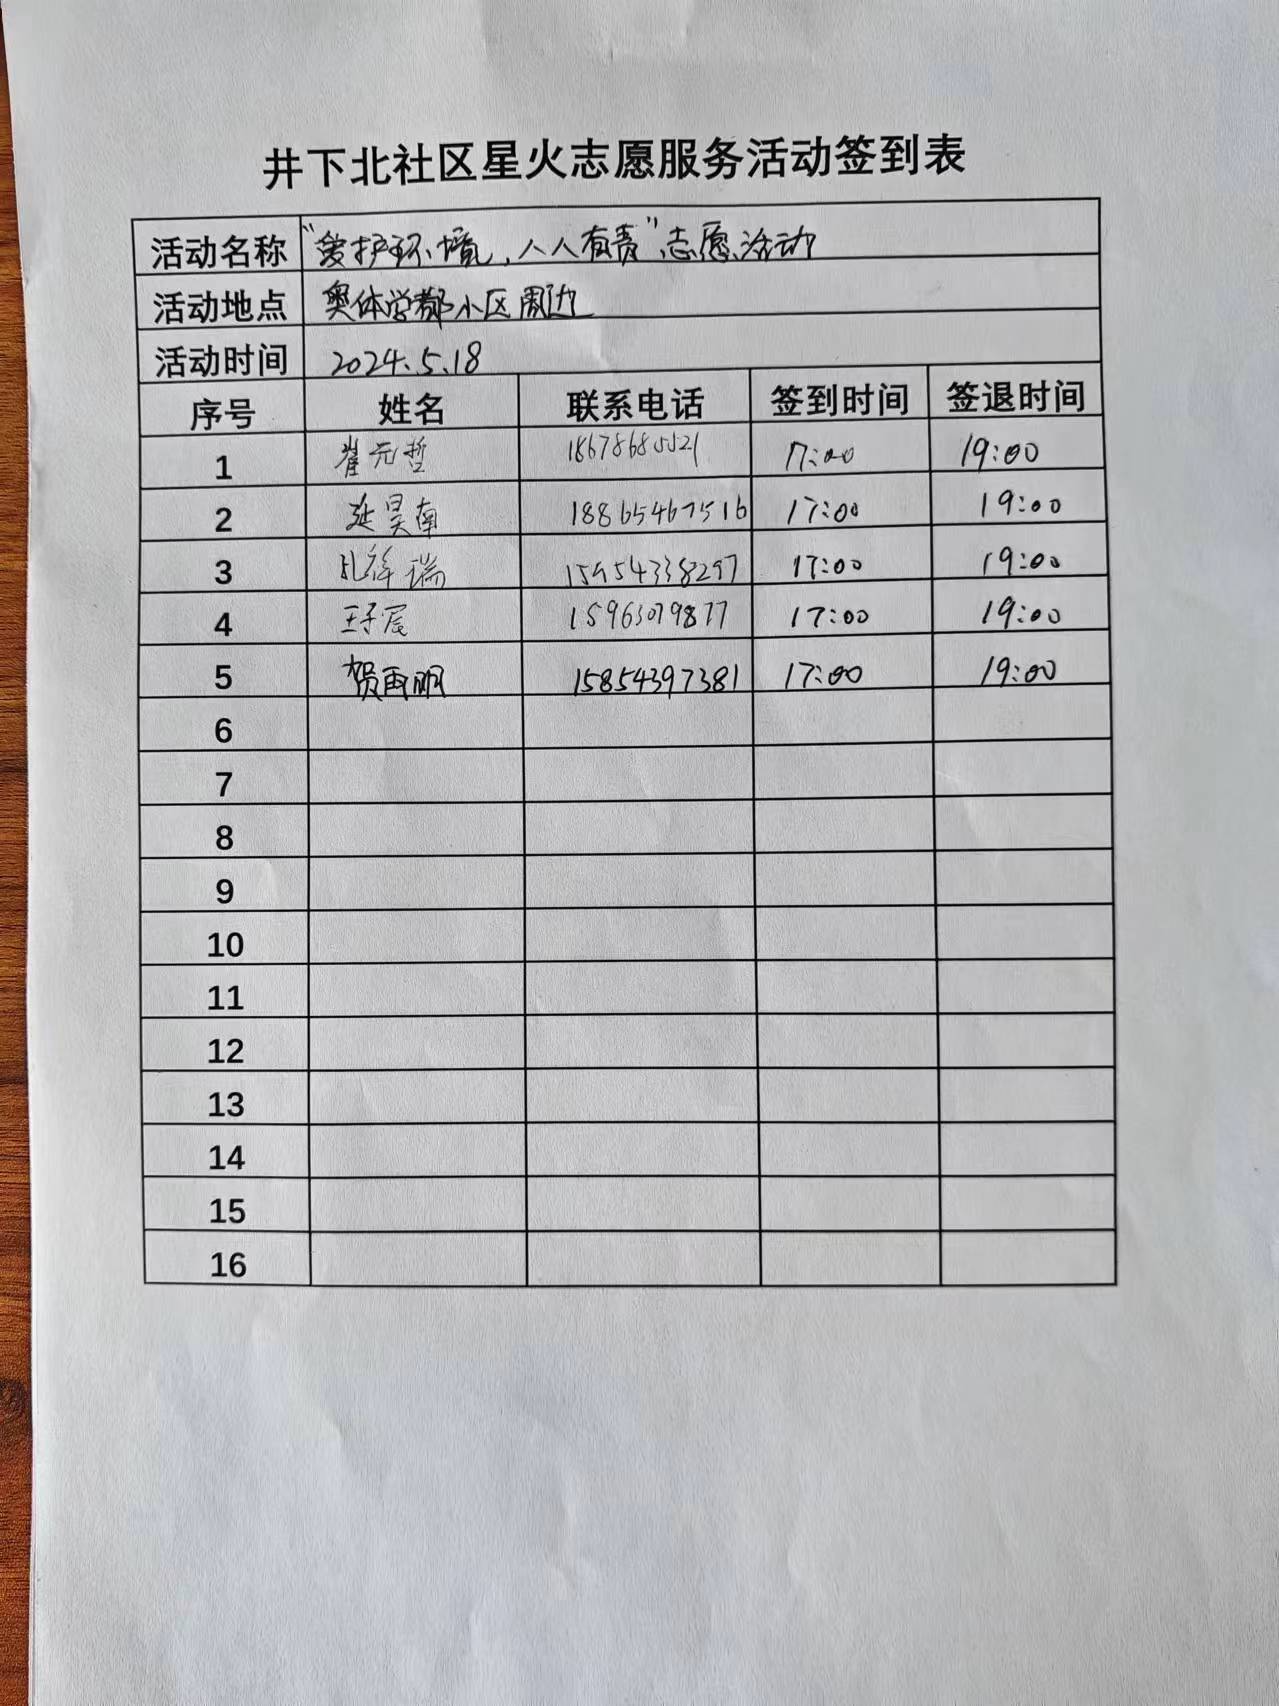 井下北社区星火志愿服务活动签到表
活动名称 “爱护环境，人人有责”志愿活动
活动地点 奥体学都小区周边
活动时间 2024.5.18
序号 姓名 联系电话 签到时间 签退时间
1 崔元哲 18678685521 17:00 19:00
2 延昊南 18865467516 17:00 19:00
3 孔祥瑞 15954338297 17:00 19:00
4 王子宸 15963079877 17:00 19:00
5 贺雨明 15854397381 17:00 19:00
6
7
8
9
10
11
12
13
14
15
16